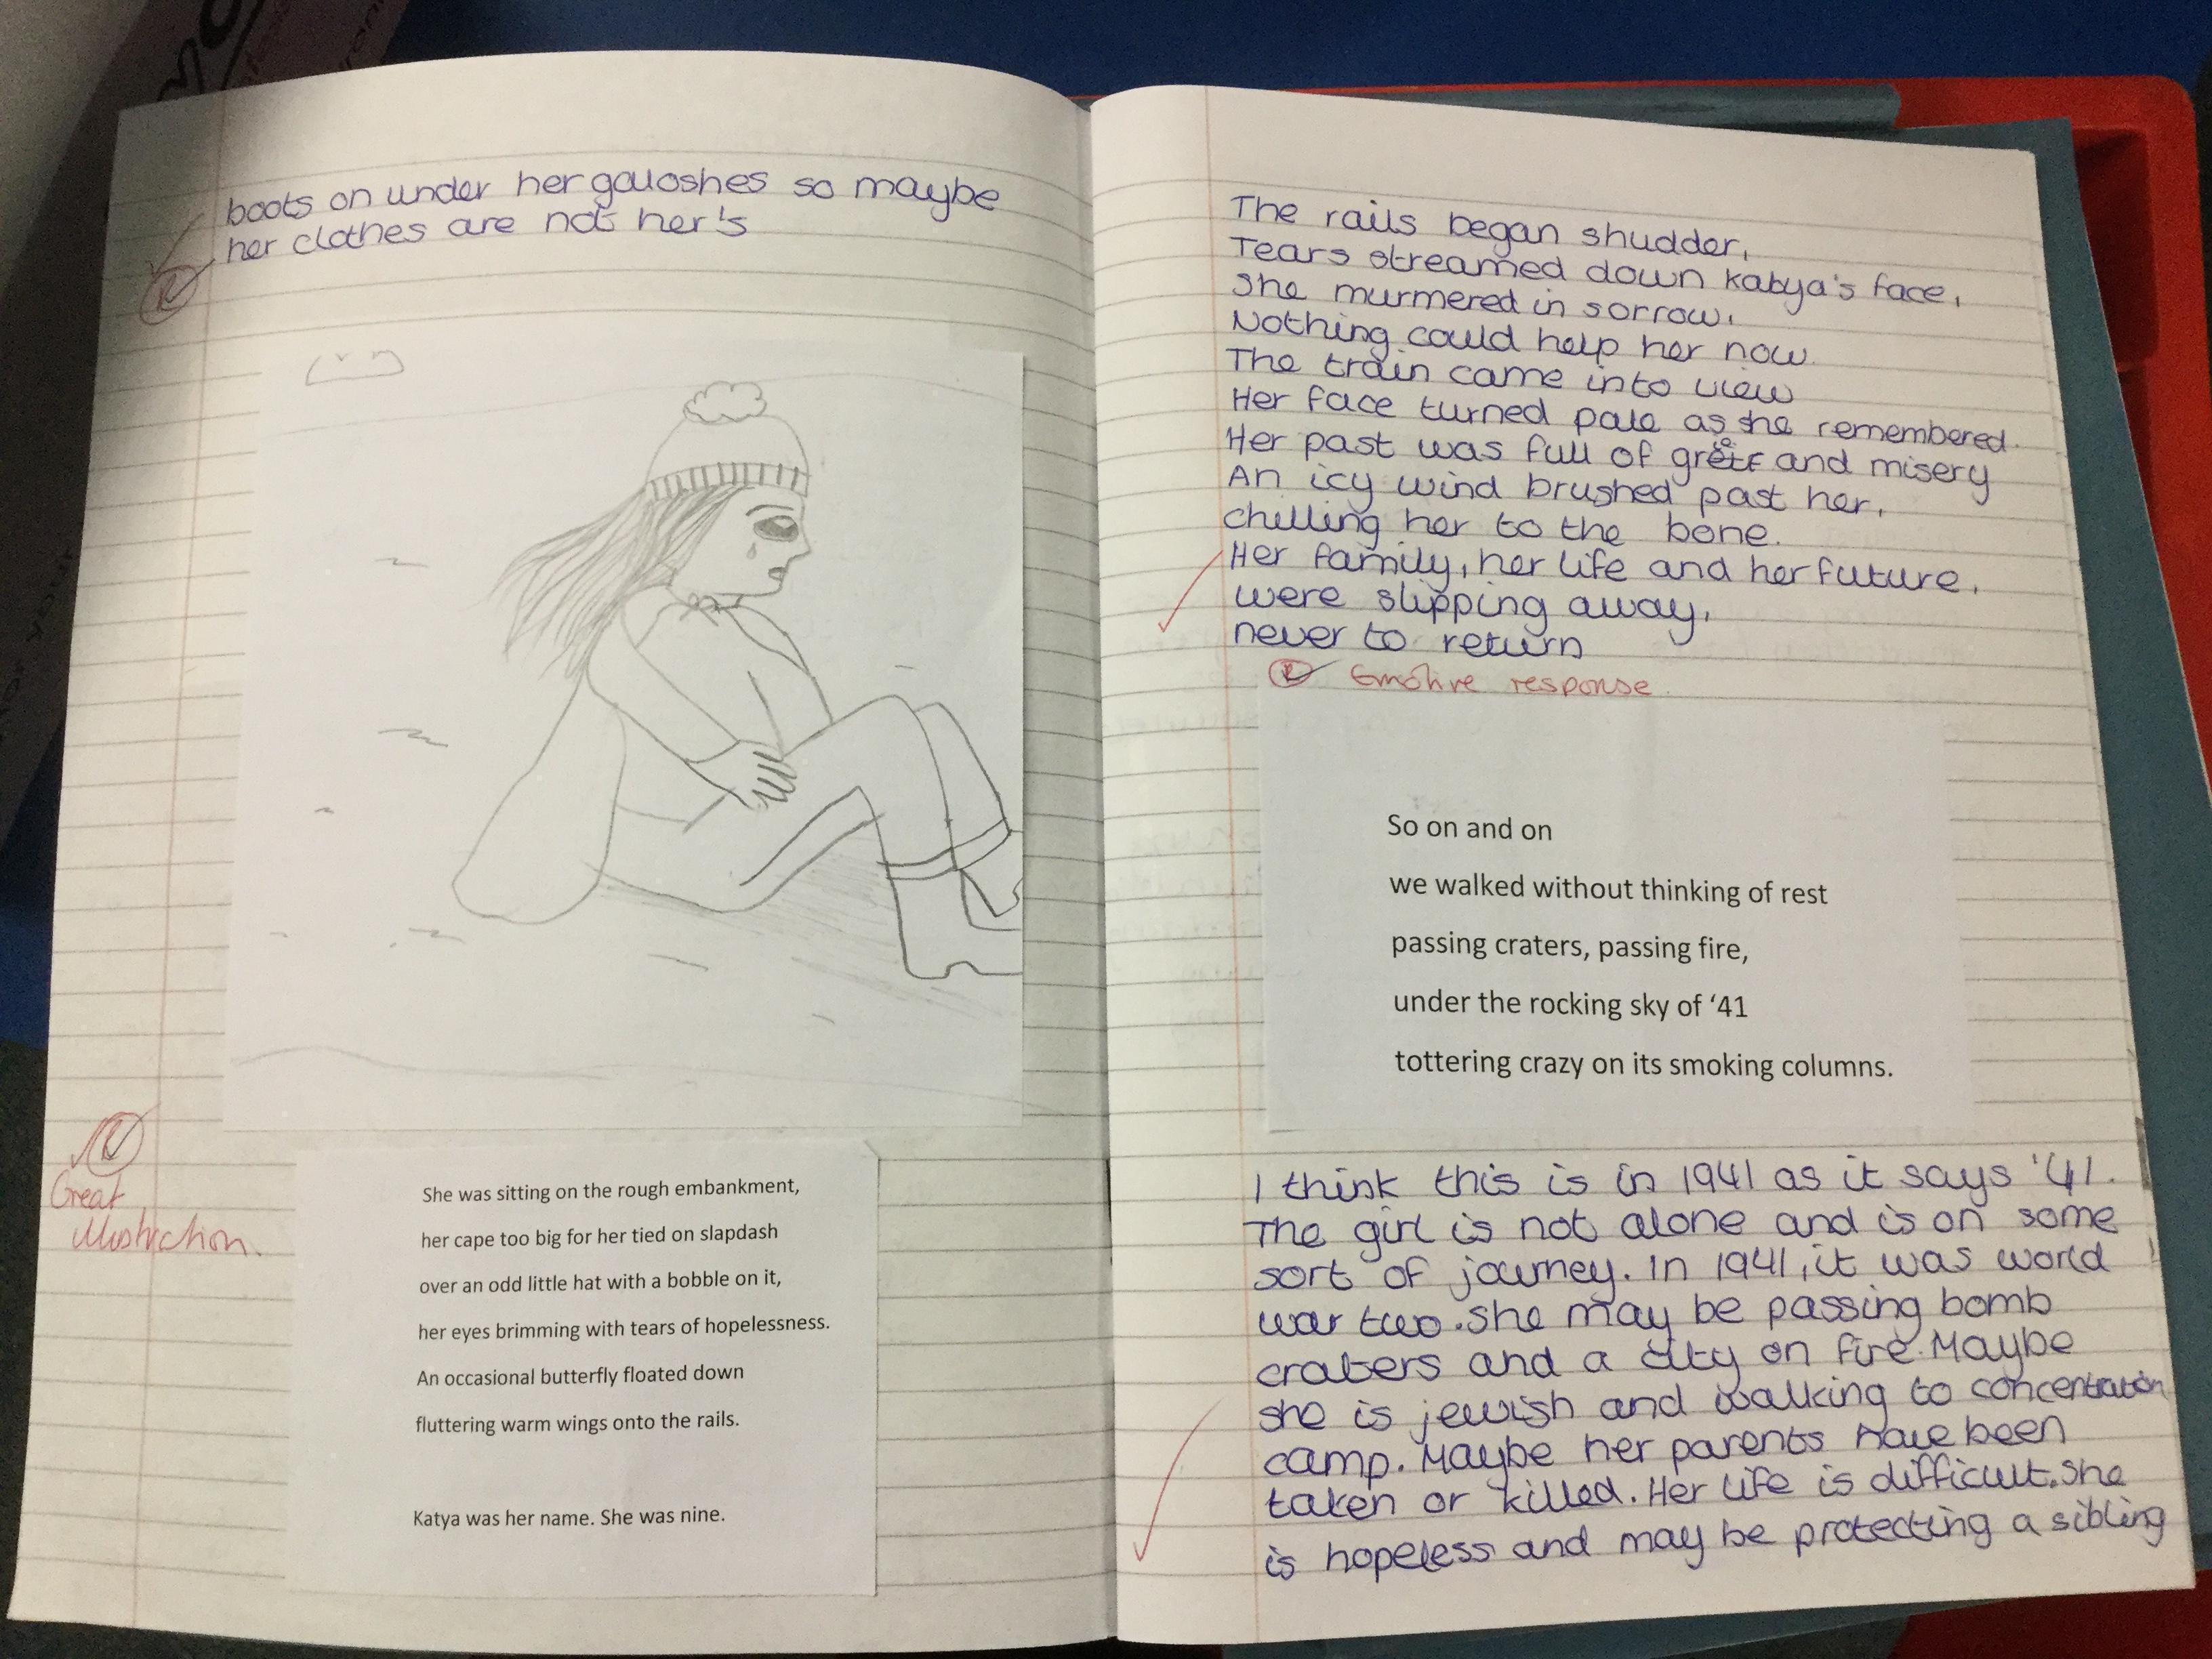 boots on under her galoshes so maybe
her clothes are not her's
Great
illustration.
She was sitting on the rough embankment,
her cape too big for her tied on slapdash
over an odd little hat with a bobble on it,
her eyes brimming with tears of hopelessness.
An occasional butterfly floated down
fluttering warm wings onto the rails.
Katya was her name. She was nine.
The rails began shudder,
Tears streamed down Katya's face,
She murmered in sorrow.
Nothing could help her now.
The train came into view
Her face turned pale as she remembered.
Her past was full of and misery
An icy wind brushed past her,
chilling her to the bone.
Her family, her life and her future,
were slipping away,
never to return
R Emotive response.
So on and on
we walked without thinking of rest
passing craters, passing fire,
under the rocking sky of ‘41
tottering crazy on its smoking columns.
I think this is in 1941 as it says '41.
The girl is not alone and is on some
sort of journey. In 1941, it was world
war two. She may be passing bomb
craters and a city on fire. Maybe
she is jewish and walking to concentration
camp. Maybe her parents have been
taken or killed. Her life is difficult. She
is hopeless and may be protecting a sibling